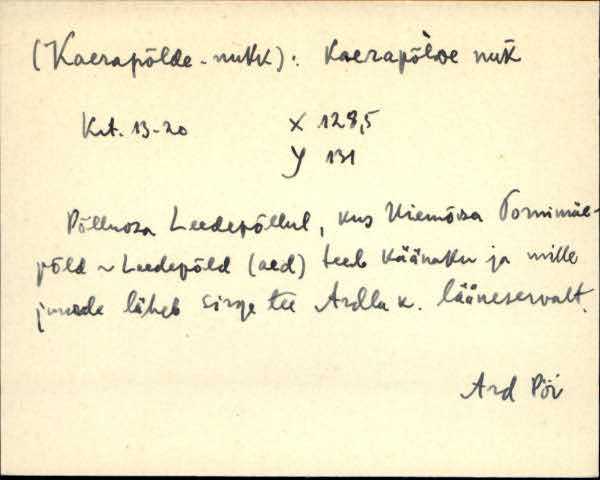 (Kaerapõlde-nukk): Kaerapõlde nuk̀
Krt. 13-20 X 128,5
Y 131
Põlluosa Leedepõllul, kus Uiemõisa Tornimäe-
põld ~ Leedepõld (aed) teeb käänaku ja mille
juurde läheb sirge tee Ardla k. lääneservalt.
Ard Pöi